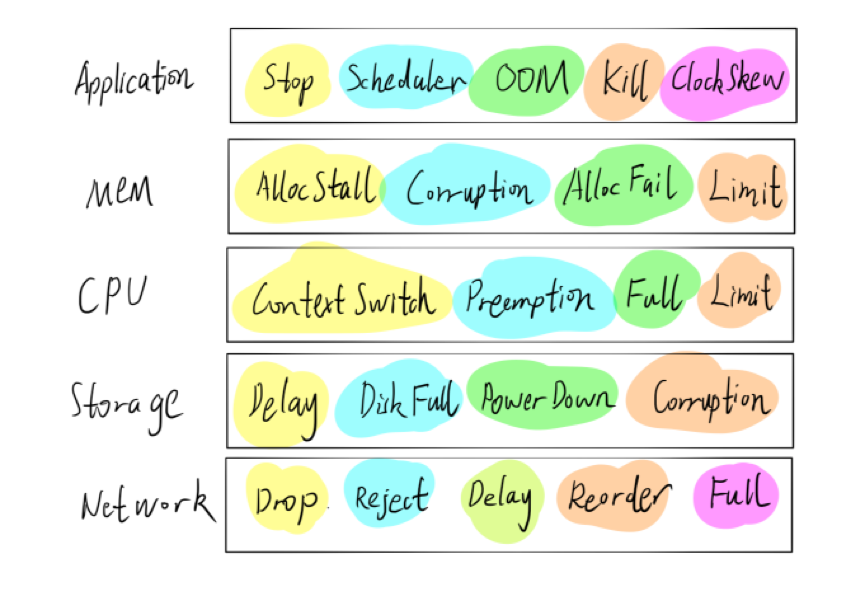 Application Stop Scheduler OOM Kill ClockSkew
MEM AllocStall Corruption Alloc Fail Limit
CPU Context Switch Preemption Full Limit
Storage Delay Disk Full Power Down Corruption
Network Drop Reject Delay Reorder Full